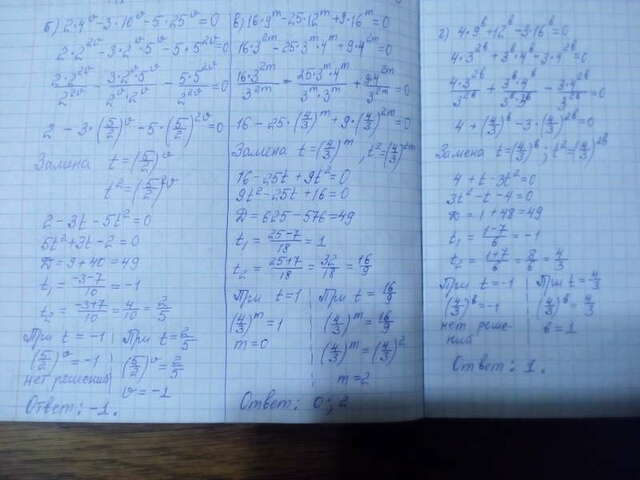 б) 2·4^v − 3·10^v − 5·25^v = 0
2·2^{2v} − 3·2^v·5^v − 5·5^{2v} = 0
\frac{2·2^{2v}}{2^{2v}} − \frac{3·2^v·5^v}{2^v·2^v} − \frac{5·5^{2v}}{2^{2v}} = 0
2 − 3·(\frac{5}{2})^v − 5·(\frac{5}{2})^{2v} = 0
Замена t = (\frac{5}{2})^v
t² = (\frac{5}{2})^{2v}
2 − 3t − 5t² = 0
5t² + 3t − 2 = 0
Д = 9 + 40 = 49
t₁ = \frac{−3−7}{10} = −1
t₂ = \frac{−3+7}{10} = \frac{4}{10} = \frac{2}{5}
При t = −1 | При t = \frac{2}{5}
(\frac{5}{2})^v = −1 | (\frac{5}{2})^v = \frac{2}{5}
нет решений | v = −1
Ответ: −1.
в) 16·9^m − 25·12^m + 9·16^m = 0
16·3^{2m} − 25·3^m·4^m + 9·4^{2m} = 0
\frac{16·3^{2m}}{3^{2m}} − \frac{25·3^m·4^m}{3^m·3^m} + \frac{9·4^{2m}}{3^{2m}} = 0
16 − 25·(\frac{4}{3})^m + 9·(\frac{4}{3})^{2m} = 0
Замена t = (\frac{4}{3})^m, t² = (\frac{4}{3})^{2m}
16 − 25t + 9t² = 0
9t² − 25t + 16 = 0
Д = 625 − 576 = 49
t₁ = \frac{25−7}{18} = 1
t₂ = \frac{25+7}{18} = \frac{32}{18} = \frac{16}{9}
При t = 1 | При t = \frac{16}{9}
(\frac{4}{3})^m = 1 | (\frac{4}{3})^m = \frac{16}{9}
m = 0 | (\frac{4}{3})^m = (\frac{4}{3})²
m = 2
Ответ: 0; 2
г) 4·9^b + 12^b − 3·16^b = 0
4·3^{2b} + 3^b·4^b − 3·4^{2b} = 0
\frac{4·3^{2b}}{3^{2b}} + \frac{3^b·4^b}{3^b·3^b} − \frac{3·4^{2b}}{3^{2b}} = 0
4 + (\frac{4}{3})^b − 3·(\frac{4}{3})^{2b} = 0
Замена t = (\frac{4}{3})^b; t² = (\frac{4}{3})^{2b}
4 + t − 3t² = 0
3t² − t − 4 = 0
Д = 1 + 48 = 49
t₁ = \frac{1−7}{6} = −1
t₂ = \frac{1+7}{6} = \frac{8}{6} = \frac{4}{3}
При t = −1 | При t = \frac{4}{3}
(\frac{4}{3})^b = −1 | (\frac{4}{3})^b = \frac{4}{3}
нет реше- | b = 1
ний
Ответ: 1.